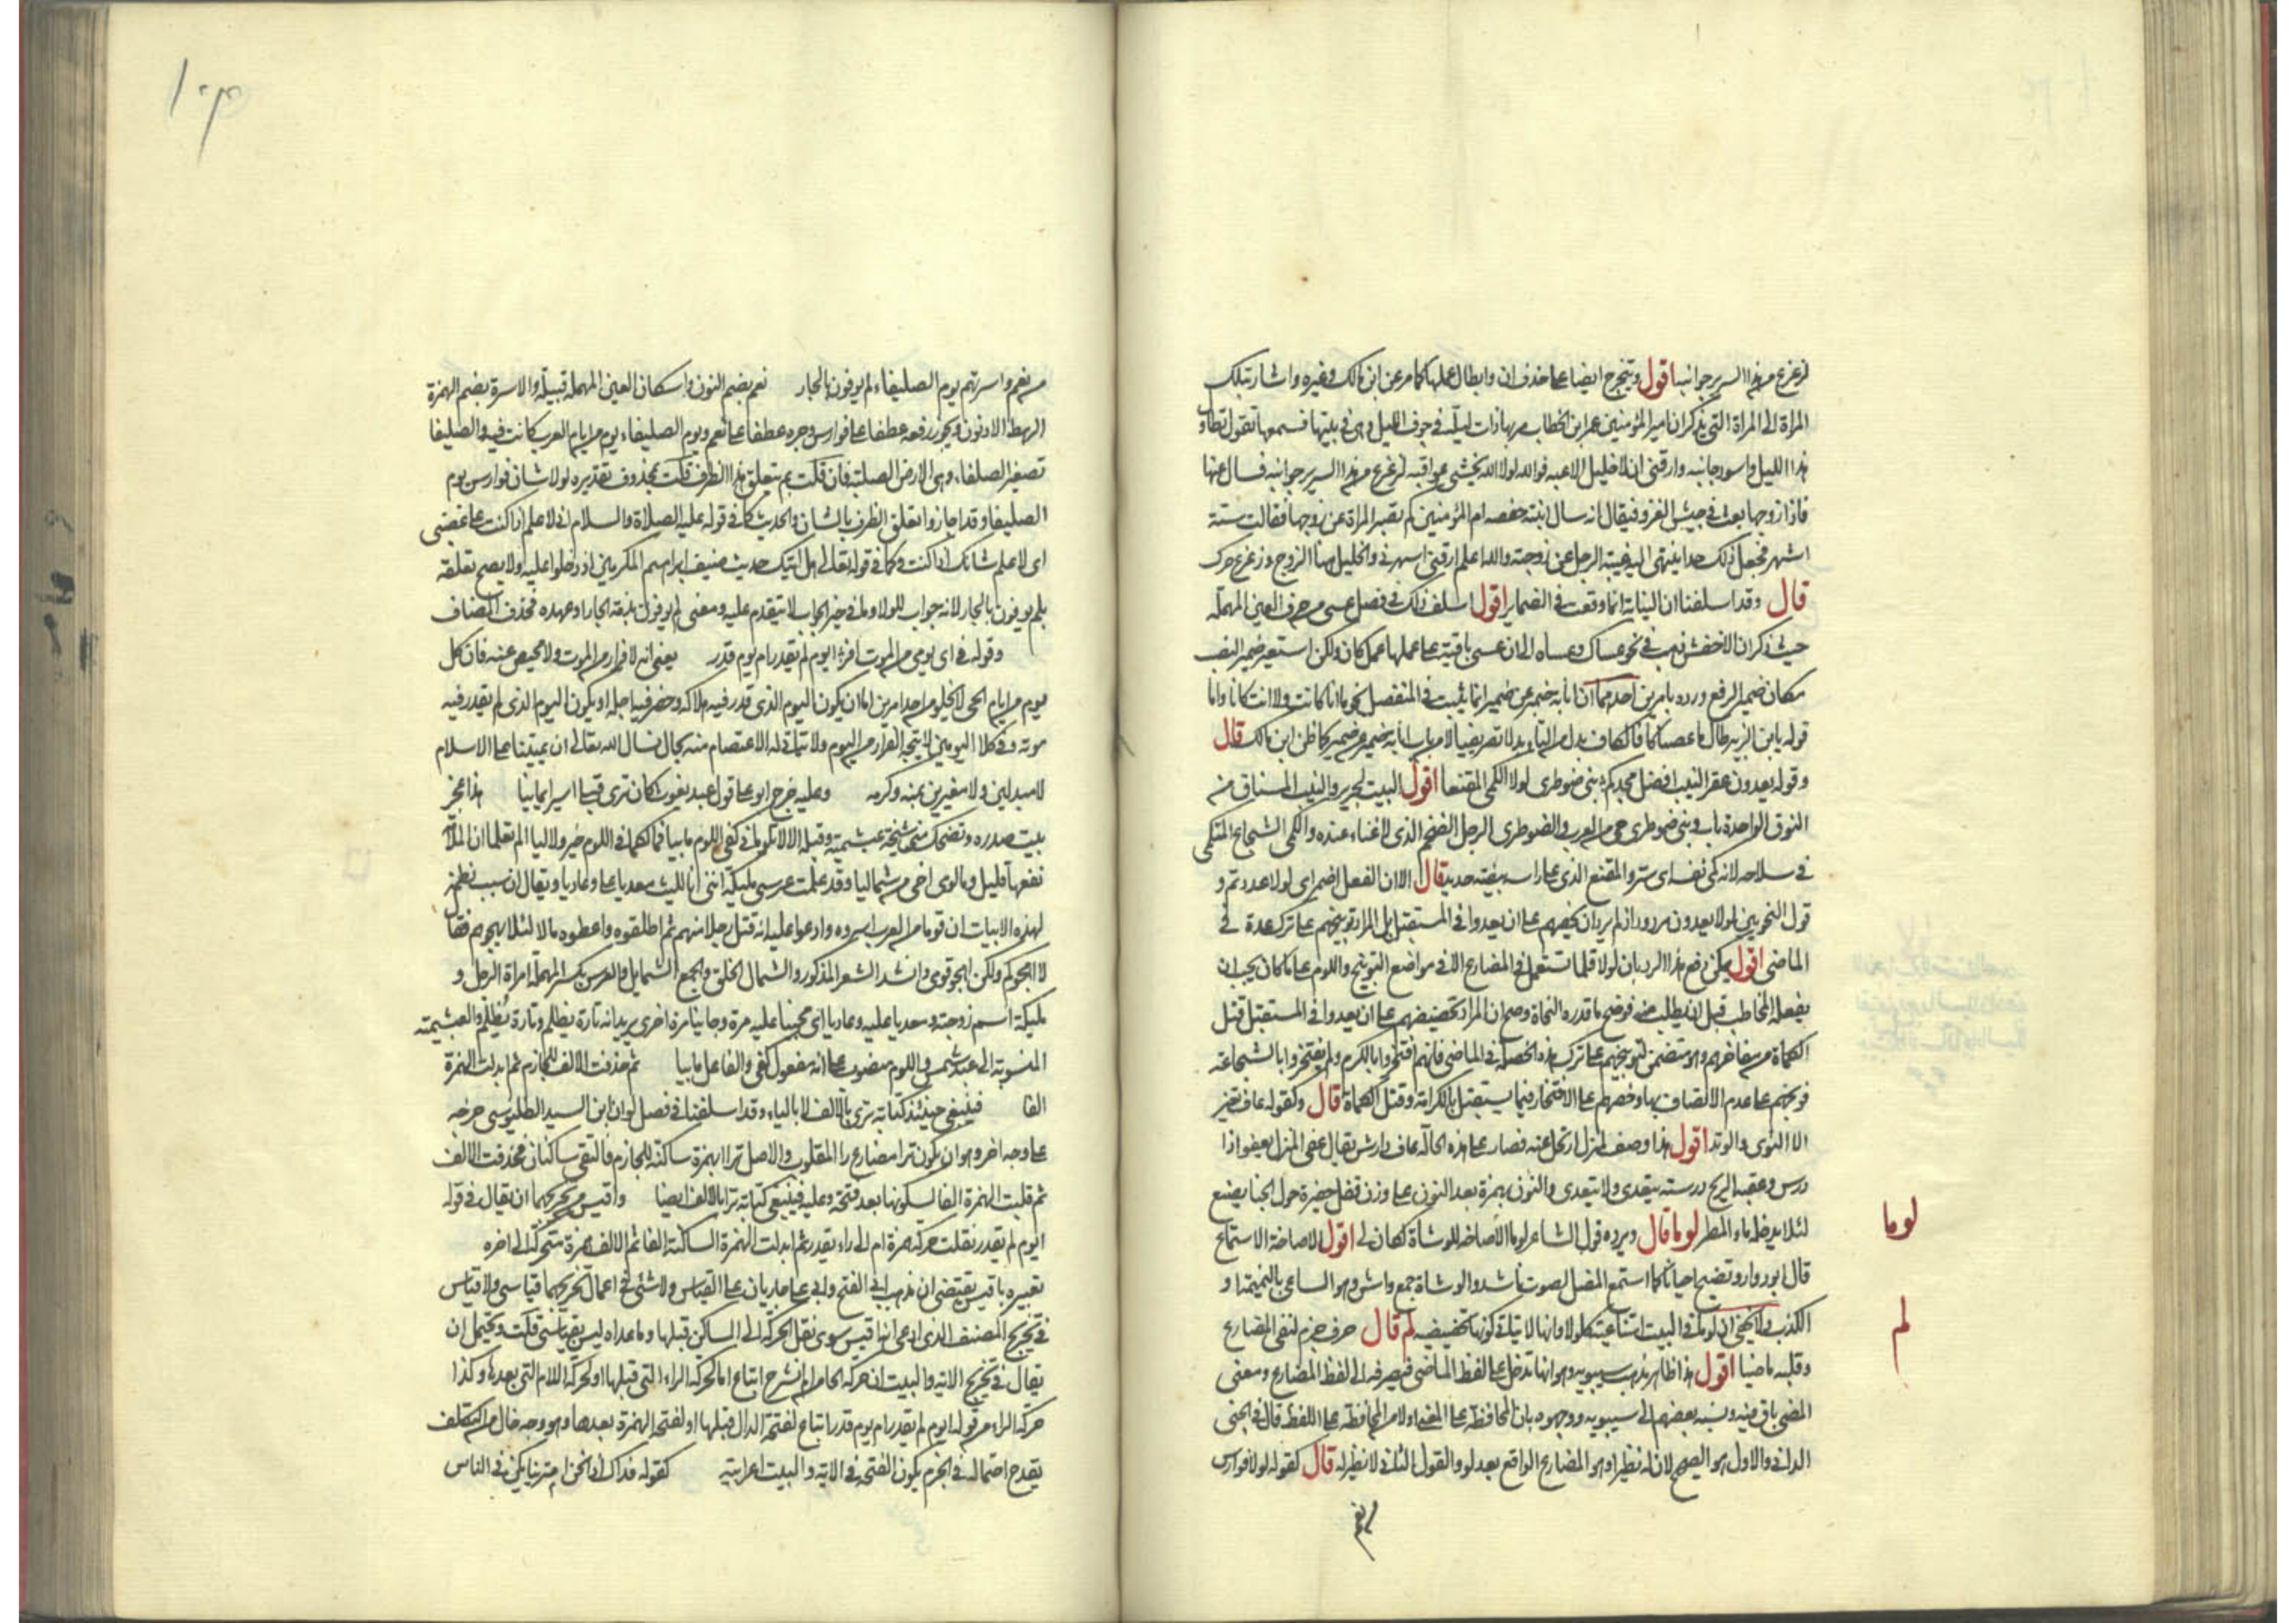 لزعزع من هذا السرير جوانبه اقول ويتخرج ايضا على حذف ان وابطال عملها كما مر عن ابن مالك وغيره واشار بتلك
المراة الى المراة التي يذكر ان امير المؤمنين عمر ابن الخطاب مر بها ذات ليلة في جوف الليل وهي في بيتها فسمعها تقول تطاول
هذا الليل واسود جانبه وارقني ان لا خليل الاعبه فوالله لولا الله يخشى عواقبه لزعزع من هذا السرير جوانبه فسال عنها
فاذا زوجها بعث في جيش الغزو فيقال انه سال ابنته حفصه ام المؤمنين كم تصبر المراة عن زوجها فقالت ستة
اشهر فجعل ذلك حدا ينتهي اليه غيبة الرجل عن زوجته والله اعلم ارقني اسهرني والخليل هنا الزوج وزعزع حرك
قال وقد اسلفنا ان النيابة انما وقعت في الضماير اقول اسلف ذلك في فصل عسى من حرف العين المهملة
حيث ذكر ان الاخفش ذهب في نحو عساك وعساه الى ان عسى باقية على عملها عمل كان ولكن استعير ضمير النصب
مكان ضمير الرفع ورده بامرين احدهما ان انابة ضمير عن ضمير انما يثبت في المنفصل نحو ما انا كانت ولا انت كانا واما
قوله يابن الزبير طال ما عصيكا فالكاف بدل من التاء بدلا تصريفيا لا من باب انابة ضمير عن ضمير كما ظن ابن مالك قال
وقوله تعدون عقر النيب افضل مجدكم بني ضوطرى لولا الكمي المقنعا اقول البيت لجرير والنيب المسان من
النوق الواحدة ناب وبني ضوطرى حي من العرب والضوطرى الرجل الضخم الذي لا غناء عنده والكمي الشجاع المتكمي
في سلاحه لانه كمى نفسه اى ستر والمقنع الذي على راسه بيضة حديد قال الا ان الفعل اضمر اى لولا عددتم و
قول النحويين لولا تعدون مردود اذ لم يرد ان يحضهم على ان يعدوا في المستقبل بل المراد توبيخهم على ترك عدة في
الماضي اقول يمكن دفع هذا الرد بان لولا قلما تستعمل في المضارع الا في مواضع التوبيخ واللوم على ما كان يجب ان
يفعله المخاطب قبل ان يطلب منه فوضح ما قدره النحاة وصح ان المراد تحضيضهم على ان يعدوا في المستقبل قتل
الكماة من مفاخرهم وهو متضمن لتوبيخهم على ترك هذه الخصلة في الماضي فانهم افتخروا بالكرم ولم يفتخروا بالشجاعة
فوبخهم على عدم الاتصاف بها وحضهم على الافتخار فيما يستقبل بالكرامة وقتل الكماة قال وكقوله عاف تغير
الا النوى والوتد اقول هذا وصف لمنزل ارتحل عنه فصار على هذه الحالة عاف دارش يقال عفى المنزل يعفو اذا
درس وعفته الريح درسته يتعدى ولا يتعدى والنوى بهمزة بعد النون على وزن قفل حفيرة حول الخبا يصنع
لئلا يدخله ماء المطر لوما قال ويرده قول الشاعر لوما الاصاخه للوشاة لكان لي اقول الاصاخة الاستماع
قال ابو دواد وتصيخ احيانا كما استمع المضل لصوت ناشد والوشاة جمع واش وهو الساعي بالنميمة و
الكذب ولا يخفى ان لوما في البيت امتناعية كلولا وانها لا يتاتى كونها تحضيضيه لم قال حرف جزم لنفي المضارع
وقلبه ماضيا اقول هذا ظاهر مذهب سيبويه وهو انها تدخل على لفظ الماضي فيصرفه الى لفظ المضارع ومعنى
المضى باق فيه ونسبه بعضهم الى سيبويه ووجهوه بان المحافظة على المعنى اولى من المحافظة على اللفظ قال في الجنى
الداني والاول هو الصحيح لان له نظيرا وهو المضارع الواقع بعد لو والقول الثاني لا نظير له قال كقوله لولا فوارس
لوما
لم
من نعم
١٠٣
من نعم واسرتهم يوم الصليفاء لم يوفون بالجار نعم بضم النون واسكان العين المهملة قبيلة والاسرة بضم الهمزة
الرهط الادنون ويجوز رفعه عطفا على فوارس وجره عطفا على نعم ويوم الصليفاء يوم من ايام العرب كانت فيه والصليفا
تصغير الصلفاء وهي الارض الصلبة فان قلت بم يتعلق هذا الظرف قلت بمحذوف تقديره لولا شان فوارس يوم
الصليفا وقد اجازوا تعلق الظرف بالشان والحديث كما في قوله عليه الصلاة والسلام اني لاعلم اذا كنت على غضبى
اى لاعلم شانك اذا كنت وكما في قوله تعالى هل اتيك حديث ضيف ابراهيم المكرمين اذ دخلوا عليه ولا يصح تعلقه
بلم يوفون بالجار لانه جواب للولا وما في خبر الجواب لا يتقدم عليه ومعنى لم يوفون بذمة الجار او عهده فحذف المضاف
وقوله في اى يومي من الموت افر ايوم لم يقدر ام يوم قدر يعني انه لا فرار من الموت ولا محيص عنه فان كل
يوم من ايام الحي لا يخلو من احد امرين اما ان يكون اليوم الذي قدر فيه هلاكه وحضر فيه اجله او يكون اليوم الذي لم يقدر فيه
موته وفي كلا اليومين لا يتجه الفرار من اليوم ولا يتاتى له الاعتصام منه بحال نسال الله تعالى ان يميتنا على الاسلام
لا مبدلين ولا مغيرين بمنه وكرمه وعليه خرج ابو على قول عبد يغوث كان ترى قبلي اسيرا يمانيا هذا عجز
بيت صدره وتضحك مني شيخة عبشمية وقبله الا لا تلوماني كفى اللوم ما بيا فما لكما في اللوم خير ولا ليا الم تعلما ان الملامة
نفعها قليل وما لومى اخي من شماليا وقد علمت عرسي مليكة انني انا الليث معديا على وعاديا ويقال ان سبب نظمه
لهذه الابيات ان قوما من العرب اسروه وادعوا عليه انه قتل رجلا منهم ثم اطلقوه واعطوه مالا لئلا يهجوهم فقال
لا اهجوكم ولكن اهجو قومى وانشد الشعر المذكور والشمال الخلق والجمع الشمايل والعرس بكسر المهملة امراة الرجل و
مليكة اسم زوجته ومعديا عليه وعاديا اى مجنيا عليه مرة وجانيا مرة اخرى يريد انه تارة يظلم وتارة يُظلم والعبشمية
المنسوبة الى عبد شمس واللوم منصوب على انه مفعول كفى والفاعل ما بيا ثم حذفت الالف للجازم ثم ابدلت الهمزة
الفا فينبغي حينئذ كتابة ترى بالالف لا بالياء وقد اسلفنا في فصل لو ان ابن السيد البطليوسي خرجه
على وجه اخر وهو ان يكون ترا مضارع را المقلوب والاصل ترا بهمزة ساكنة للجازم فالتقى ساكنان فحذفت الالف
ثم قلبت الهمزة الفا لسكونها بعد فتحة وعليه فينبغي كتابة ترا بالالف ايضا واقيس من تخريجهما ان يقال في قوله
ايوم لم يقدر نقلت حركة همزة ام الى راء يقدر ثم ابدلت الهمزة الساكنة الفا ثم الالف همزة متحركة الى اخره
تعبيره باقيس يقتضي ان مذهب ابي الفتح وابي على جاريان على القياس ولا شئ في اعمال تخريجهما قياسي ولا قياس
في تخريج المصنف الذي ادعى انه اقيس سوى نقل الحركة الى الساكن قبلها وما عداه ليس بقياسي قلت ويحتمل ان
يقال في تخريج الاية والبيت ان حركة الحا من الم نشرح اتباع اما لحركة الراء التي قبلها او لحركة اللام التي بعدها وكذا
حركة الراء من قوله ايوم لم يقدر ام يوم قدر اتباع لفتحة الدال قبلها او لفتحة الهمزة بعدها وهو وجه خال من التكلف
يقدح احتماله في الجزم بكون الفتحة في الاية والبيت اعرابية كقوله فذاك اذا نحن امترينا يكن في الناس